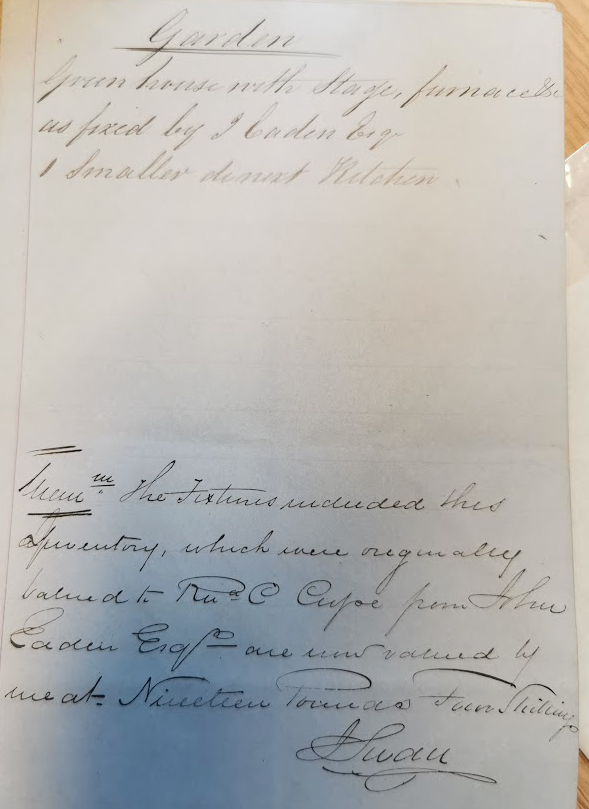 Garden
Green house with Stage, furnace &c
as fixed by J Eaden Esqr
1 Smaller do next Kitchen
Memm The Fixtures included this
Inventory, which were originally
valued to Revd C from John
Eaden Esqre are now valued by
me at Nineteen Pounds Four Shillings
J Swan